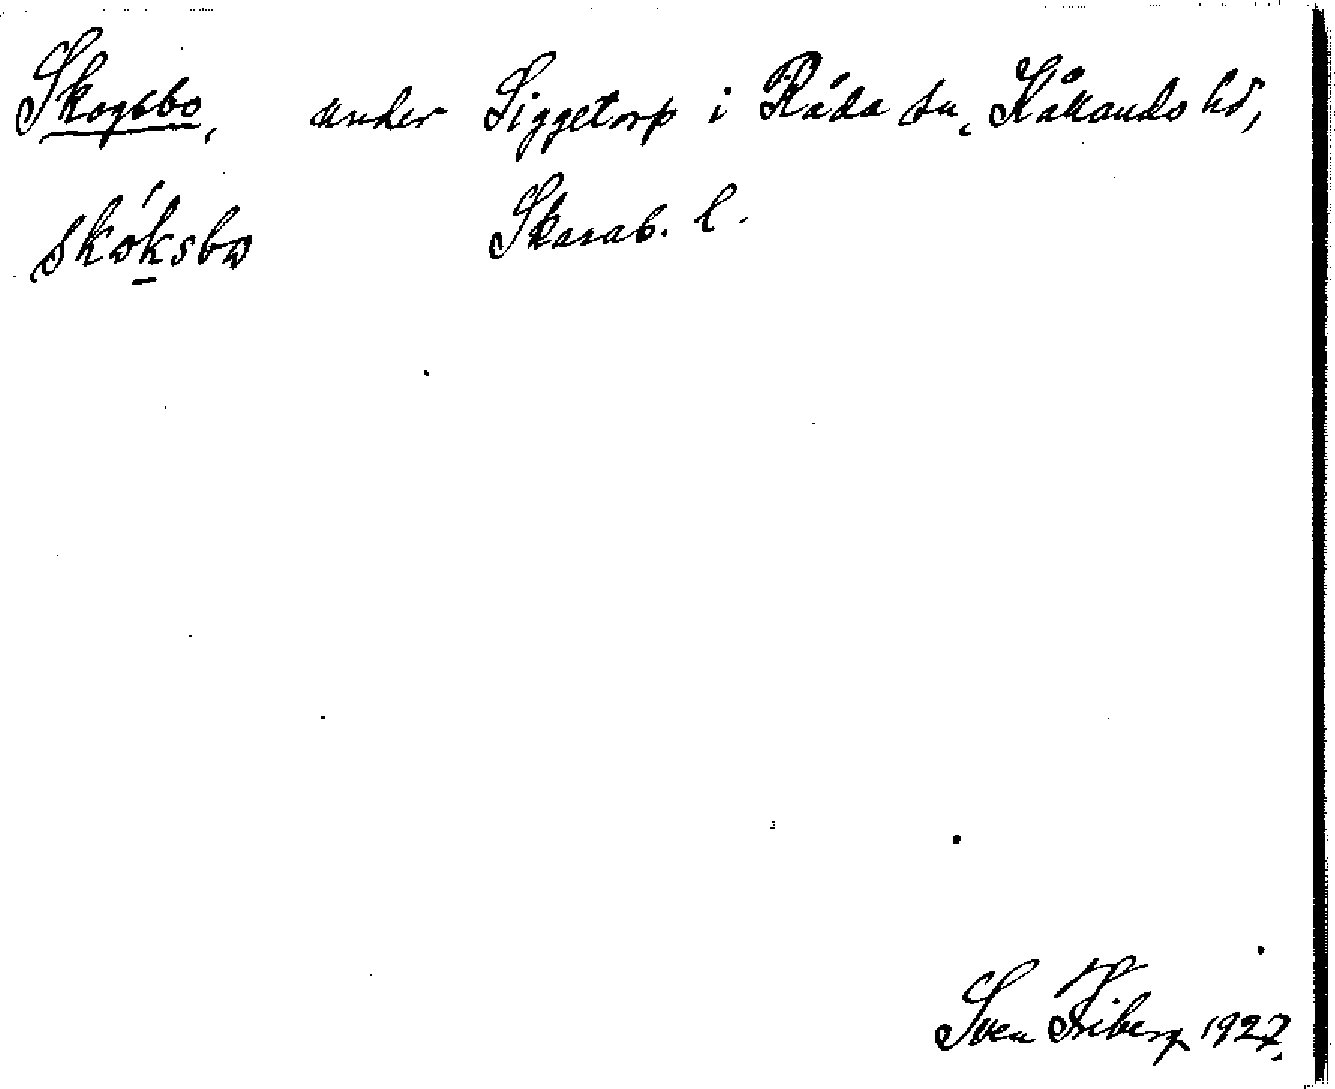 Skogsbo, under Siggetorp i Råda sn, Kållands hd,
skóksbω Skarab. l.
Sven Friberg 1927.